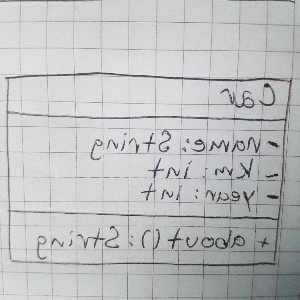 Car
- name: String
- Km: int
- year: int
+ about(): String